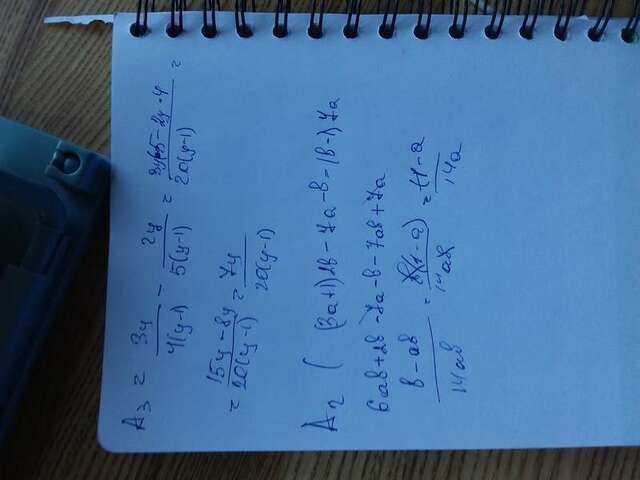 A3 = 3y/4(y-1) - 2y/5(y-1) = 3y·5-2y·4/20(y-1) =
= 15y-8y/20(y-1) = 7y/20(y-1)
A2 ( (3a+1)2b - 7a - b - (b-1)7a
6ab+2b-7a-b-7ab+7a
b-ab/14ab = b(1-a)/14ab = 1-a/14a